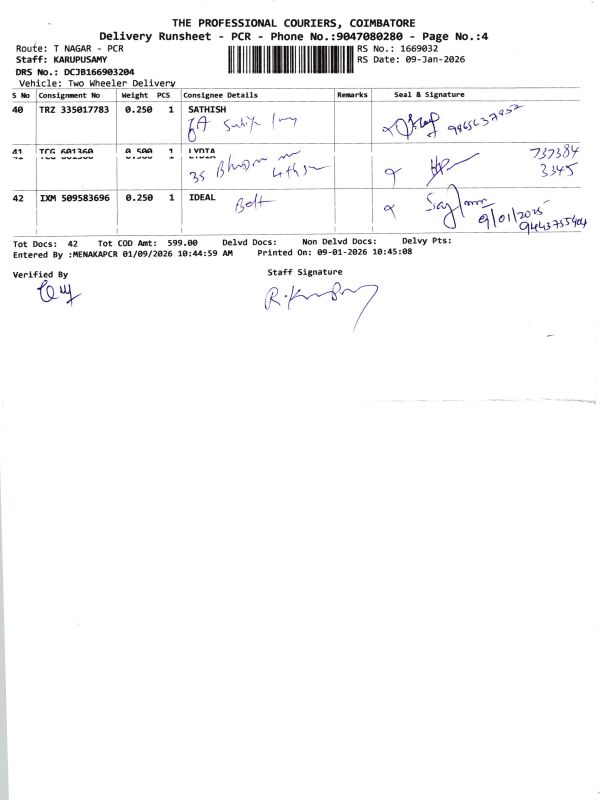 THE PROFESSIONAL COURIERS, COIMBATORE
Delivery Runsheet - PCR - Phone No.:9047080280 - Page No.:4
Route: T NAGAR - PCR
RS No.: 1669032
Staff: KARUPUSAMY
RS Date: 09-Jan-2026
DRS No.: DCJB166903204
Vehicle: Two Wheeler Delivery
S No Consignment No Weight PCS Consignee Details Remarks Seal & Signature
40 TRZ 335017783 0.250 1 SATHISH
6A
9865637852
41 TCG 601360 0.500 1 LYDIA
35 4th
737384
3345
42 IXM 509583696 0.250 1 IDEAL
Belt
9/01/2025
9443755404
Tot Docs: 42 Tot COD Amt: 599.00 Delvd Docs: Non Delvd Docs: Delvy Pts:
Entered By :MENAKAPCR 01/09/2026 10:44:59 AM Printed On: 09-01-2026 10:45:08
Verified By
Staff Signature